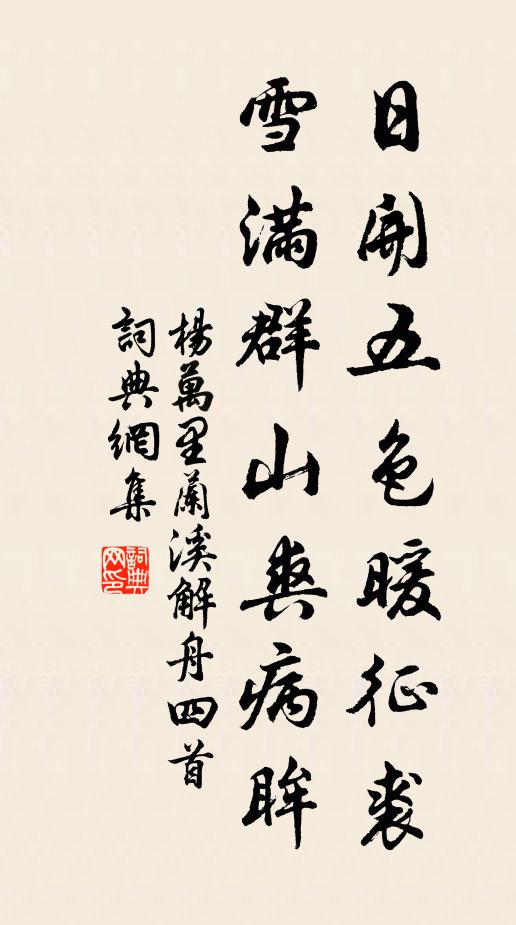 日開五色暖征裘
雪滿群山爽病眸
楊萬里蘭溪解舟四首
詞典網集
詞典網印